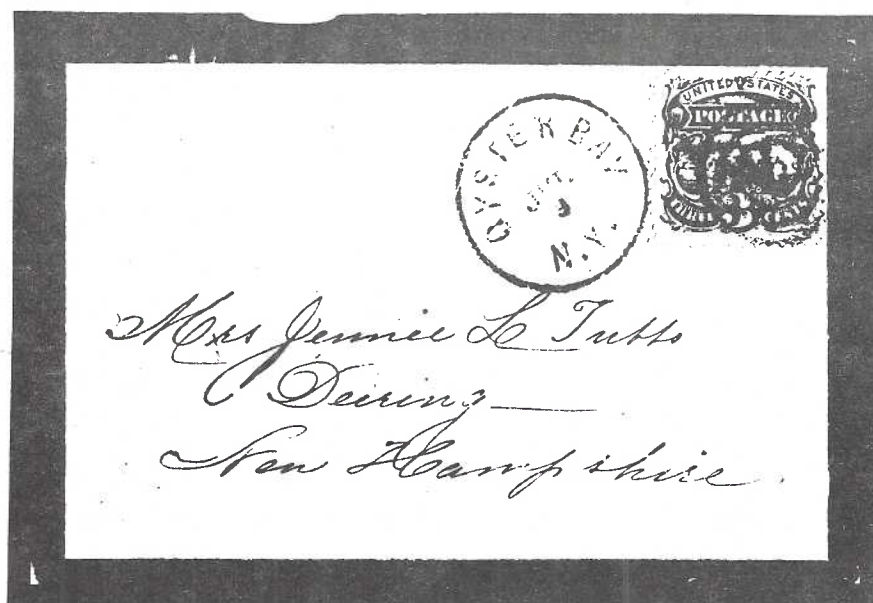 UNITED STATES
POSTAGE
3
OYSTER BAY
N.Y.
Mrs Jennie L Tubbs
Deering
New Hampshire